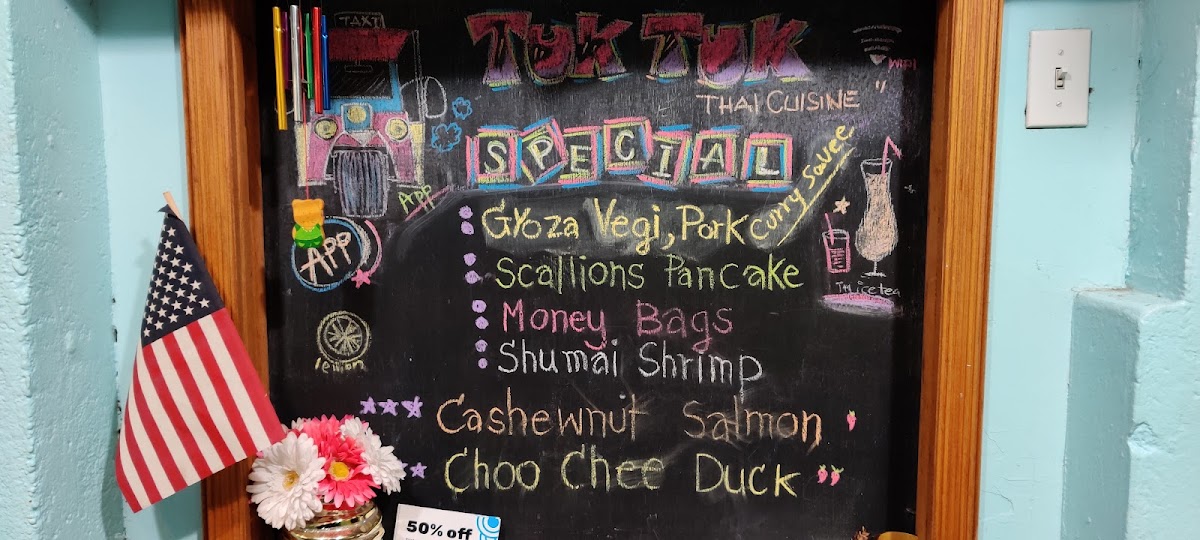 TAXI
TUK TUK
WIFI
"THAI CUISINE"
SPECIAL
App
Gyoza Vegi, Pork curry sauce
APP
Scallions Pancake
Thai ice tea
Money Bags
Shumai Shrimp
lemon
Cashewnut Salmon
Choo Chee Duck
50% off